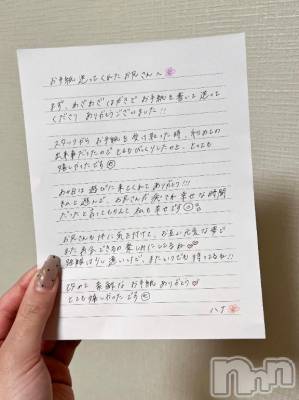 お手紙 送ってくれたお兄さんへ
まず、わざわざはがきでお手紙を書いて送って
くださり ありがとうございました!!
スタッフから お手紙を受け取った時、初めての
出来事だったのでとてもびっくりしたのと、とっても
嬉しかったです
あの日は遊びに来てくれてありがとう!!!
きのと遊んで、お兄さんが 幸せな時間
だったと言ってもらえて 私も幸せです
お兄さんも体に気を付けて、お互い元気な姿で
また お会できるの楽しみにしてるね♡
けど、またいつでも待ってるね!!
改めて 素敵な お手紙 ありがとう♡
とても嬉しかったです
ハナ
nmn